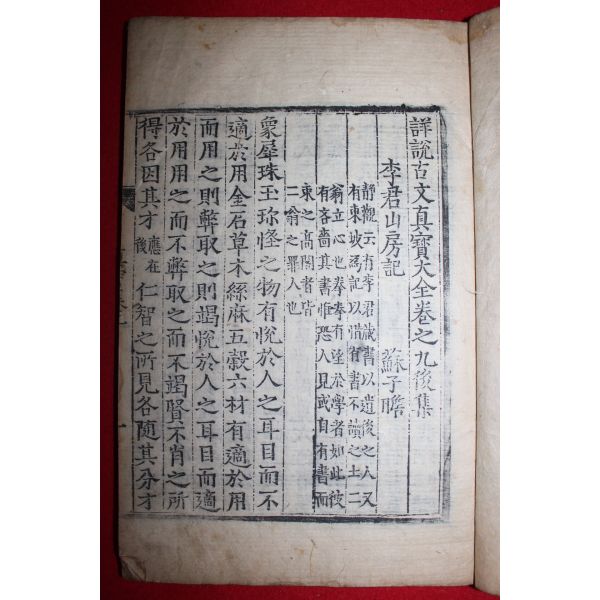 詳說古文真寶大全卷之九後集
李君山房記 蘇子瞻
靜觀云有李君藏書以遺後之人又
有東坡爲記以惜有書不讀之士二
翁立心也拳拳有望於學者如此彼
有吝嗇其書惟恐人見或自有書而
束之高閣者皆
二翁之罪人也
象犀珠玉珎怪之物有悅於人之耳目而不
適於用金石草木絲麻五穀六材有適於用
而用之則弊取之則竭悅於人之耳目而適
於用用之而不弊取之而不竭賢不肖之所
得各因其才 應在後 仁智之所見各隨其分才